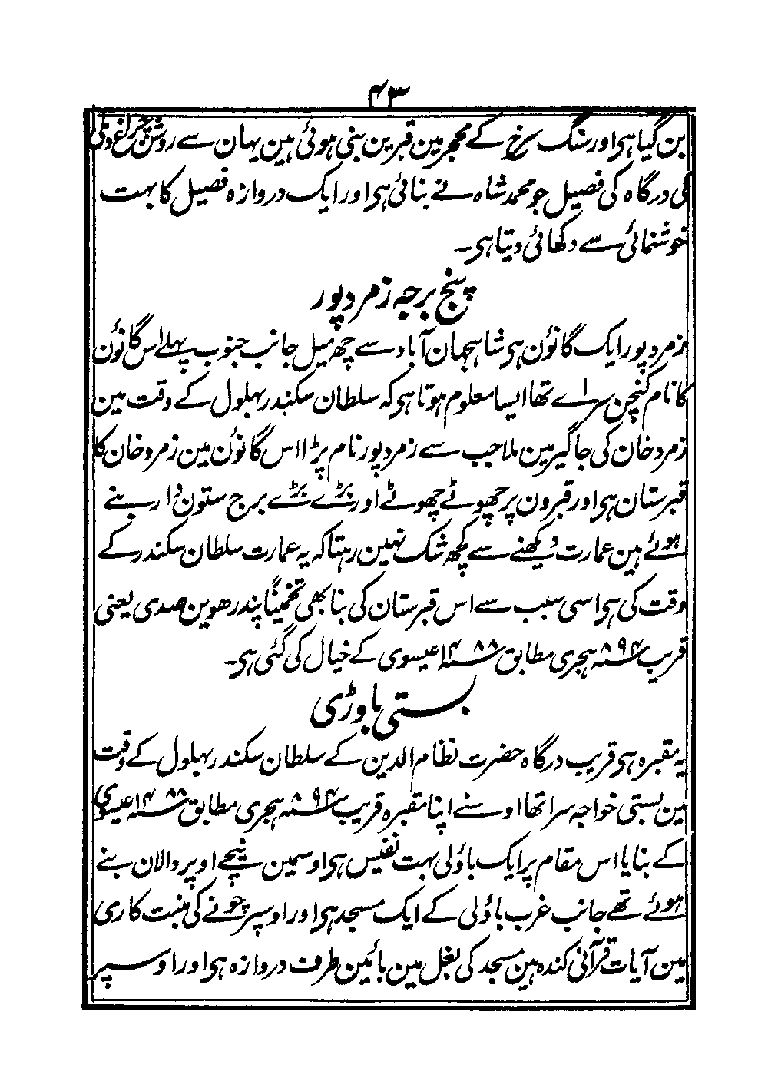 ۴۳
بن گیا ہی اور سنگ سرخ کے مجر مین قبرین بنی ہوئی ہین یہان سے روشن چراغ دلی
کی درگاہ کی فصیل جو محمد شاہ نے بنائی ہی اور ایک دروازہ فصیل کا بہت
خوشنمائی سے دکھائی دیتا ہی۔
پنج برجہ زمرد پور
زمرد پور ایک گانوُن ہی شاہجہان آباد سے چھ میل جانب جنوب پہلے اس گانوُن
کا نام کنچن سراے تھا ایسا معلوم ہوتا ہی کہ سلطان سکندر بہلول کے وقت مین
زمرد خان کی جاگیر مین ملا جب سے زمرد پور نام پڑا اس گانوُن مین زمرد خان کا
قبرستان ہی اور قبرون پر چھوٹے چھوٹے اور بڑے بڑے برج ستون دار بنے
ہوئے ہین عمارت دیکھنے سے کچھ شک نہین رہتا کہ یہ عمارت سلطان سکندر کے
وقت کی ہی اسی سبب سے اس قبرستان کی بنا بھی تخمیناً پندرھوین صدی یعنی
قریب سنہ ۸۹۴ ہجری مطابق سنہ ۱۴۸۸ عیسوی کے خیال کی گئی ہی۔
بستی باوڑی
یہ مقبرہ ہی قریب درگاہ حضرت نظام الدین کے سلطان سکندر بہلول کے وقت
مین بستی خواجہ سرا تھا اوسنے اپنا مقبرہ قریب سنہ ۸۹۴ ہجری مطابق سنہ ۱۴۸۸ عیسوی
کے بنایا اس مقام پر ایک باؤلی بہت نفیس ہی اوسمین نیچے اوپر دالان بنے
ہوئے تھے جانب غرب باؤلی کے ایک مسجد ہی اور اوسپر چونے کی منبت کاری
مین آیات قرآنی کندہ ہین مسجد کی بغل مین بائین طرف دروازہ ہی اور اوسپر